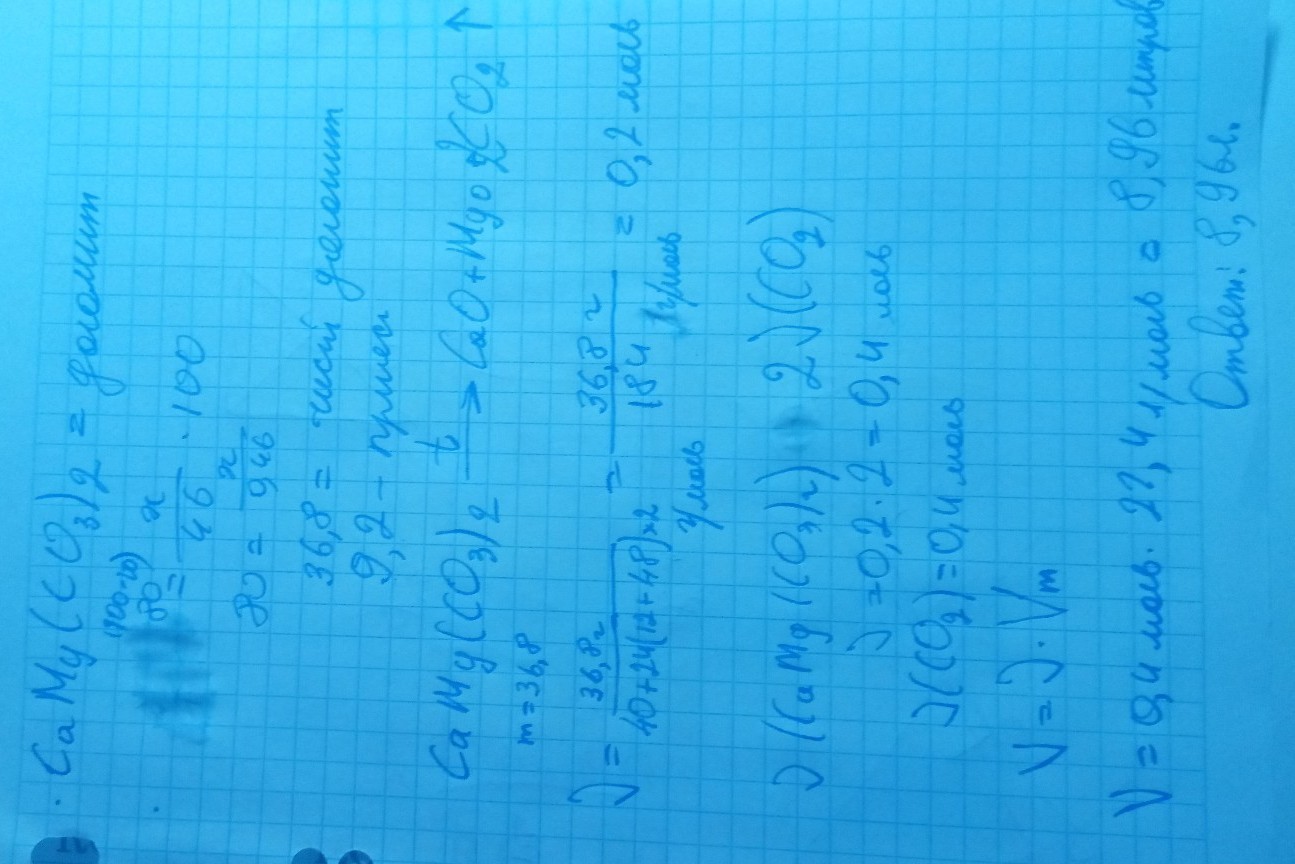 CaMg(CO3)2 = доломит
(100-20)
80 = x/46 · 100
80 = x/0,46
36,8 = чистый доломит
9,2 - примеси
CaMg(CO3)2 t→ CaO + MgO + 2CO2 ↑
m = 36,8
ν = 36,8г / 40+24(12+48)×2 г/моль = 36,8 г / 184 г/моль = 0,2 моль
ν(CaMg(CO3)2) 2ν(CO2)
ν = 0,2 · 2 = 0,4 моль
ν(CO2) = 0,4 моль
V = ν · Vm
V = 0,4 моль · 22,4 л/моль = 8,96 литров
Ответ: 8,96л.